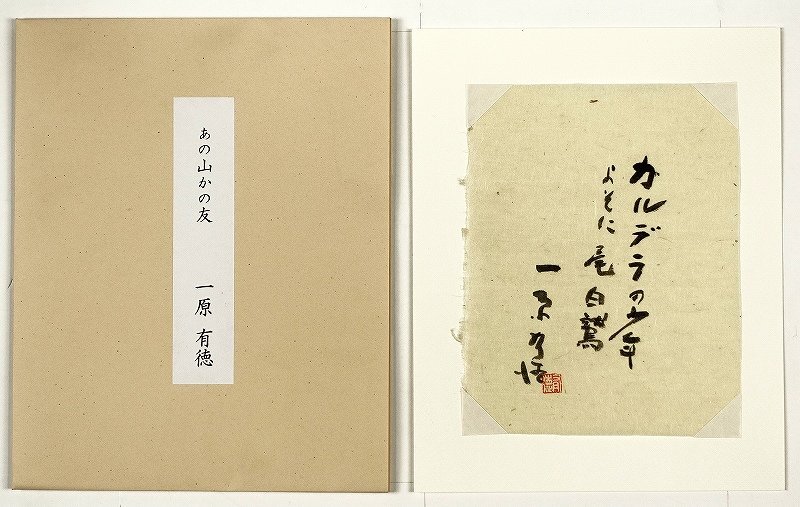 あの山かの友
一原 有徳
カルデラの少年
よそに尾白鷲
一原有徳